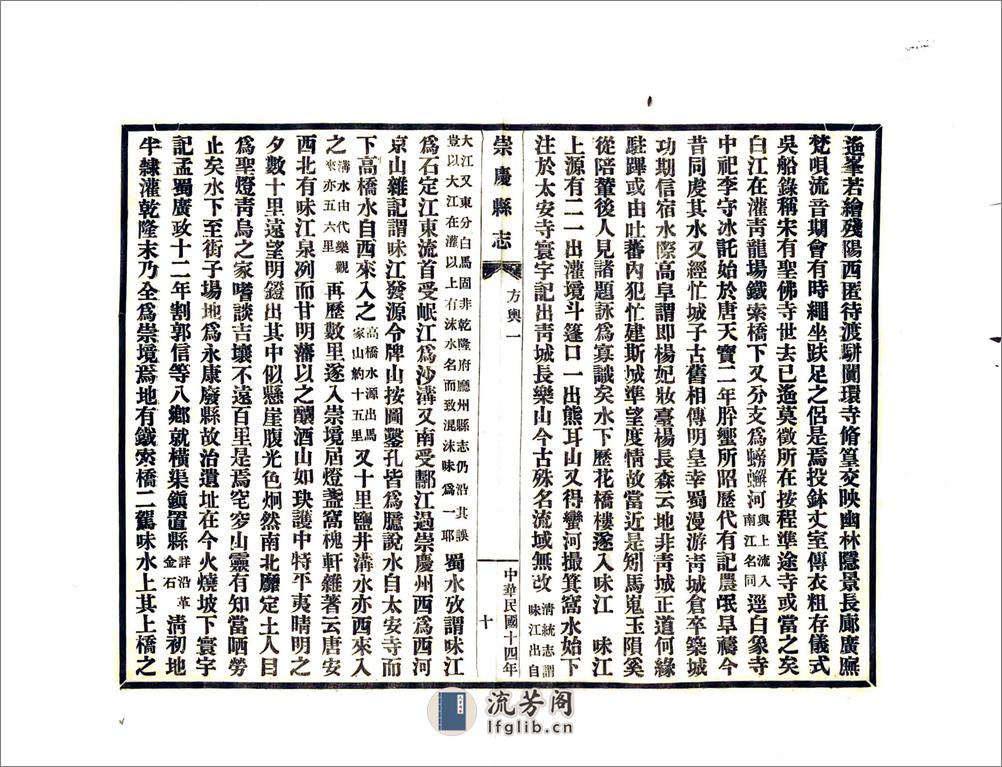 迤峯若繪殘陽西匿待渡駢闐環寺脩篁交映幽林隱景長廊廣廡
梵唄流音期會有時繩坐趺足之侶是焉投鉢丈室傳衣粗存儀式
吳船錄稱宋有聖佛寺世去已遙莫徵所在按程準途寺或當之矣
白江在灌青龍場鐵索橋下又分支爲螃蠏河與上流入南江名同逕白象寺
中祀李守冰託始於唐天寶二年肸蠁所昭歷代有記農氓旱禱今
昔同虔其水又經忙城子古舊相傳明皇幸蜀漫游靑城倉卒築城
功期信宿水際高阜謂卽楊妃妝臺楊長森云地非靑城正道何緣
駐蹕或由吐蕃內犯忙建斯城準望度情故當近是矧馬嵬玉隕奚
從陪輦後人見諸題詠爲寡識矣水下歷花橋樓遂入味江　味江
上源有二一出灌境斗篷口一出熊耳山又得蠻河撮箕窩水始下
注於太安寺寰宇記出靑城長樂山今古殊名流域無改淸統志謂味江出自
崇慶縣志
方輿一
十
中華民國十四年
大江又東分白馬固非乾隆府廳州縣志仍沿其誤豈以大江在灌以上有沫水名而致混沫味爲一耶蜀水攷謂味江
爲石定江東流首受岷江爲沙溝又南受酈江過崇慶州西爲西河
京山雜記謂味江發源令牌山按圖鑿孔皆爲臆說水自太安寺而
下高橋水自西來入之高橋水源出馬家山約十五里又十里鹽井溝水亦西來入
之溝水由代樂觀來亦五六里再歷數里遂入崇境居燈盞窩槐軒雜著云唐安
西北有味江泉冽而甘明藩以之釀酒山如玦護中特平夷晴明之
夕數十里遠望明鐙出其中似懸崖腹光色炯然南北靡定土人目
爲聖燈靑烏之家嗜談吉壤不遠百里是焉窀穸山靈有知當哂勞
止矣水下至街子場地爲永康廢縣故治遺址在今火燒坡下寰宇
記孟蜀廣政十二年割郭信等八鄉就橫渠鎭置縣詳沿革金石淸初地
半隸灌乾隆末乃全爲崇境焉地有鐵索橋二駕味水上其上橋之
流芳阁
lfglib.cn